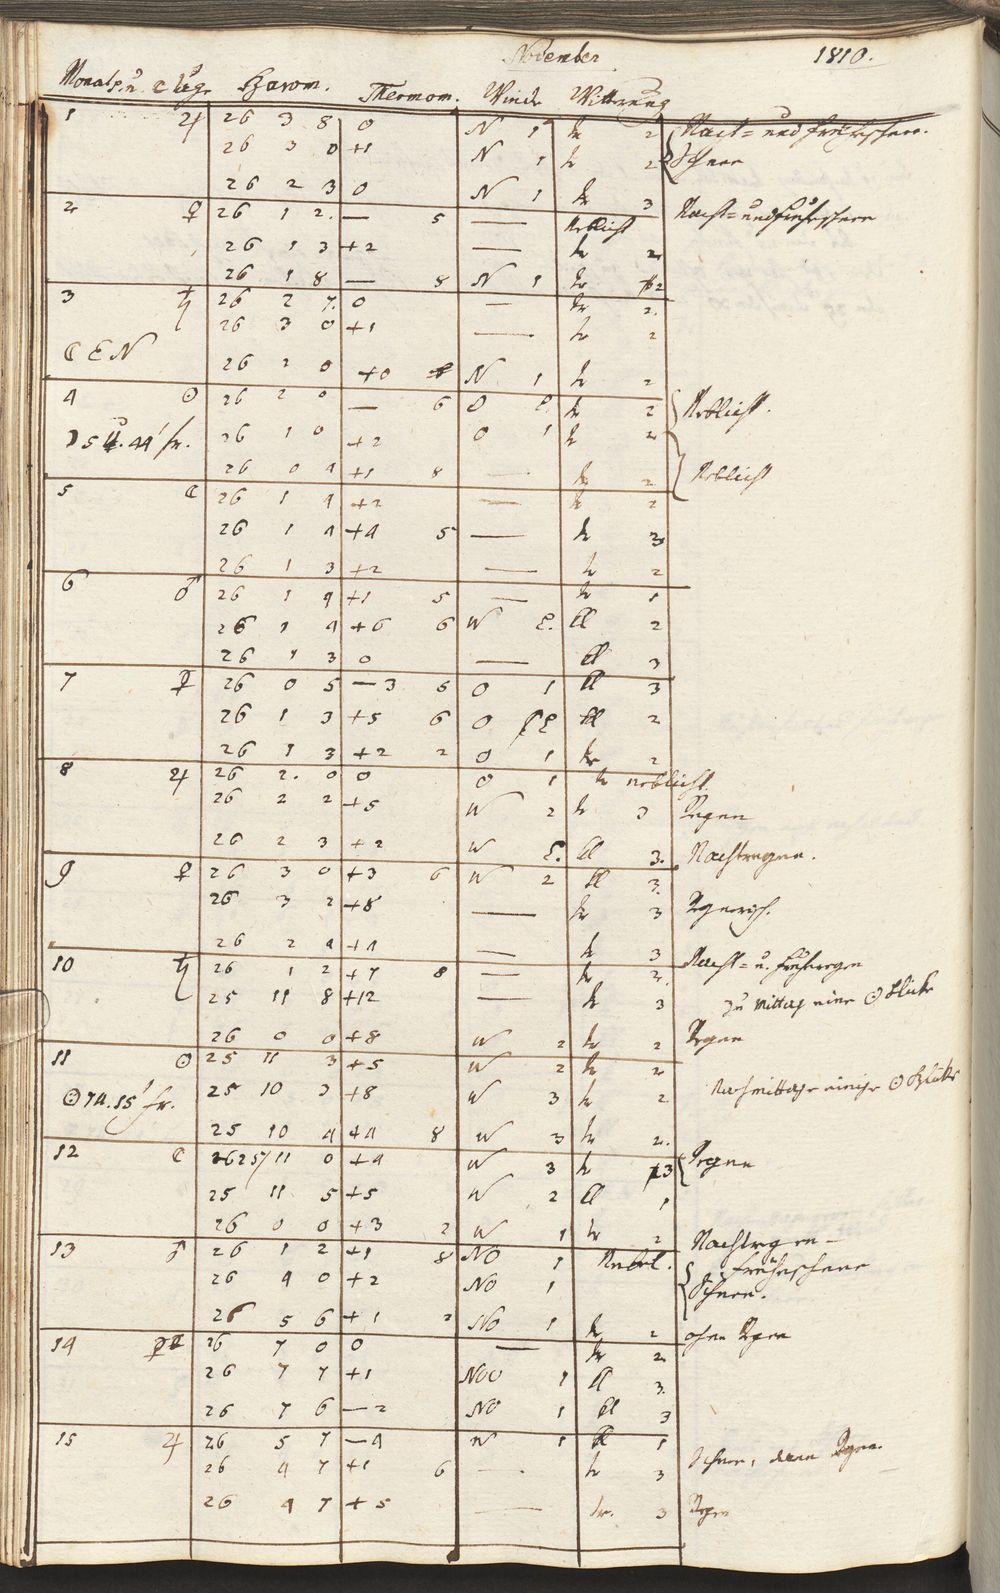 November 1810.
Monats u. ☾ Tage Barom. Thermom. Winde Wittrung
1 ♃ 26 3 8 0 N 1 tr 2 Nacht= und Früheschnee.
26 3 0 +1 N 1 tr 2 Schnee
26 2 3 0 N 1 tr 3
2 ♀ 26 1 2. — 5 — neblicht Nacht= und Früheschnee
26 1 3 +2 — tr 2
26 1 8 — 8 N 1 tr 2
3 ♄ 26 2 7. 0 — tr 2.
26 3 0 +1 — tr 2
☾ E N 26 2 0 +0 N 1 tr 2
4 ☉ 26 2 0 — 6 O tr 2 Neblicht.
5 U. 44' fr. 26 1 0 +2 O 1 tr 2
26 0 4 +1 8 — tr 2 Neblicht
5 ☾ 26 1 4 +2 — tr 2
26 1 4 +4 5 — tr 3
26 1 3 +2 — tr 2
6 ♂ 26 1 4 +1 5 — tr 1
26 1 4 +6 6 W El 2
26 1 3 0 — El 3
7 ☿ 26 0 5 —3 5 O 1 El 3
26 1 3 +5 6 O El 2
26 1 3 +2 2 O 1 tr 2
8 ♃ 26 2. 0 0 O 1 tr neblicht.
26 2 2 +5 W 2 tr 3 Regen
26 2 3 +2 W El 3. Nachtregen.
9 ♀ 26 3 0 +3 6 W 2 El 3.
26 3 2 +8 — tr 3 Regnerisch.
26 2 4 +4 — tr 3
10 ♄ 26 1 2 +7 8 — tr 2. Nacht= u. Früheregen
25 11 8 +12 — tr 3 zu Mittag eine ☉ Blicke
26 0 0 +8 W 2 tr 2 Regen
11 ☉ 25 11 3 +5 W 2 tr 2
25 10 3 +8 W 3 tr 2 Nachmittage einige ☉ Blicke
25 10 4 +4 8 W 3 tr 2.
12 ☾ 25 11 0 +4 W 3 tr 3 Regen
25 11 5 +5 W 2 El 1
26 0 0 +3 2 W 1 tr 2
13 ♂ 26 1 2 +1 8 NO 1 Nebel. Nachtregen—
26 4 0 +2 NO 1 Früheschnee
Schnee.
26 5 6 +1 2 NO 1 tr 2
14 ☿ 26 7 0 0 — tr 2
26 7 7 +1 NOO 1 El 3.
26 7 6 —2 NO 1 El 3
15 ♃ 26 5 7 —4 W 1 El 1
26 4 7 +1 6 — tr 3 Schnee, dann Regen.
26 4 7 +5 — tr. 3 Regen